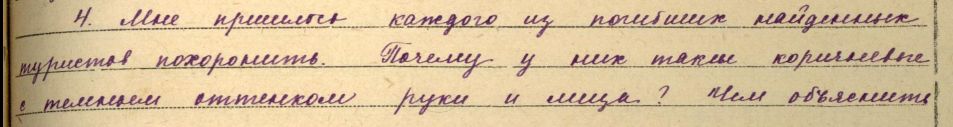 4. Мне пришлось каждого из погибших найденных
туристов похоронить. Почему у них такие коричневые
с темным оттенком руки и лица? Чем объяснить